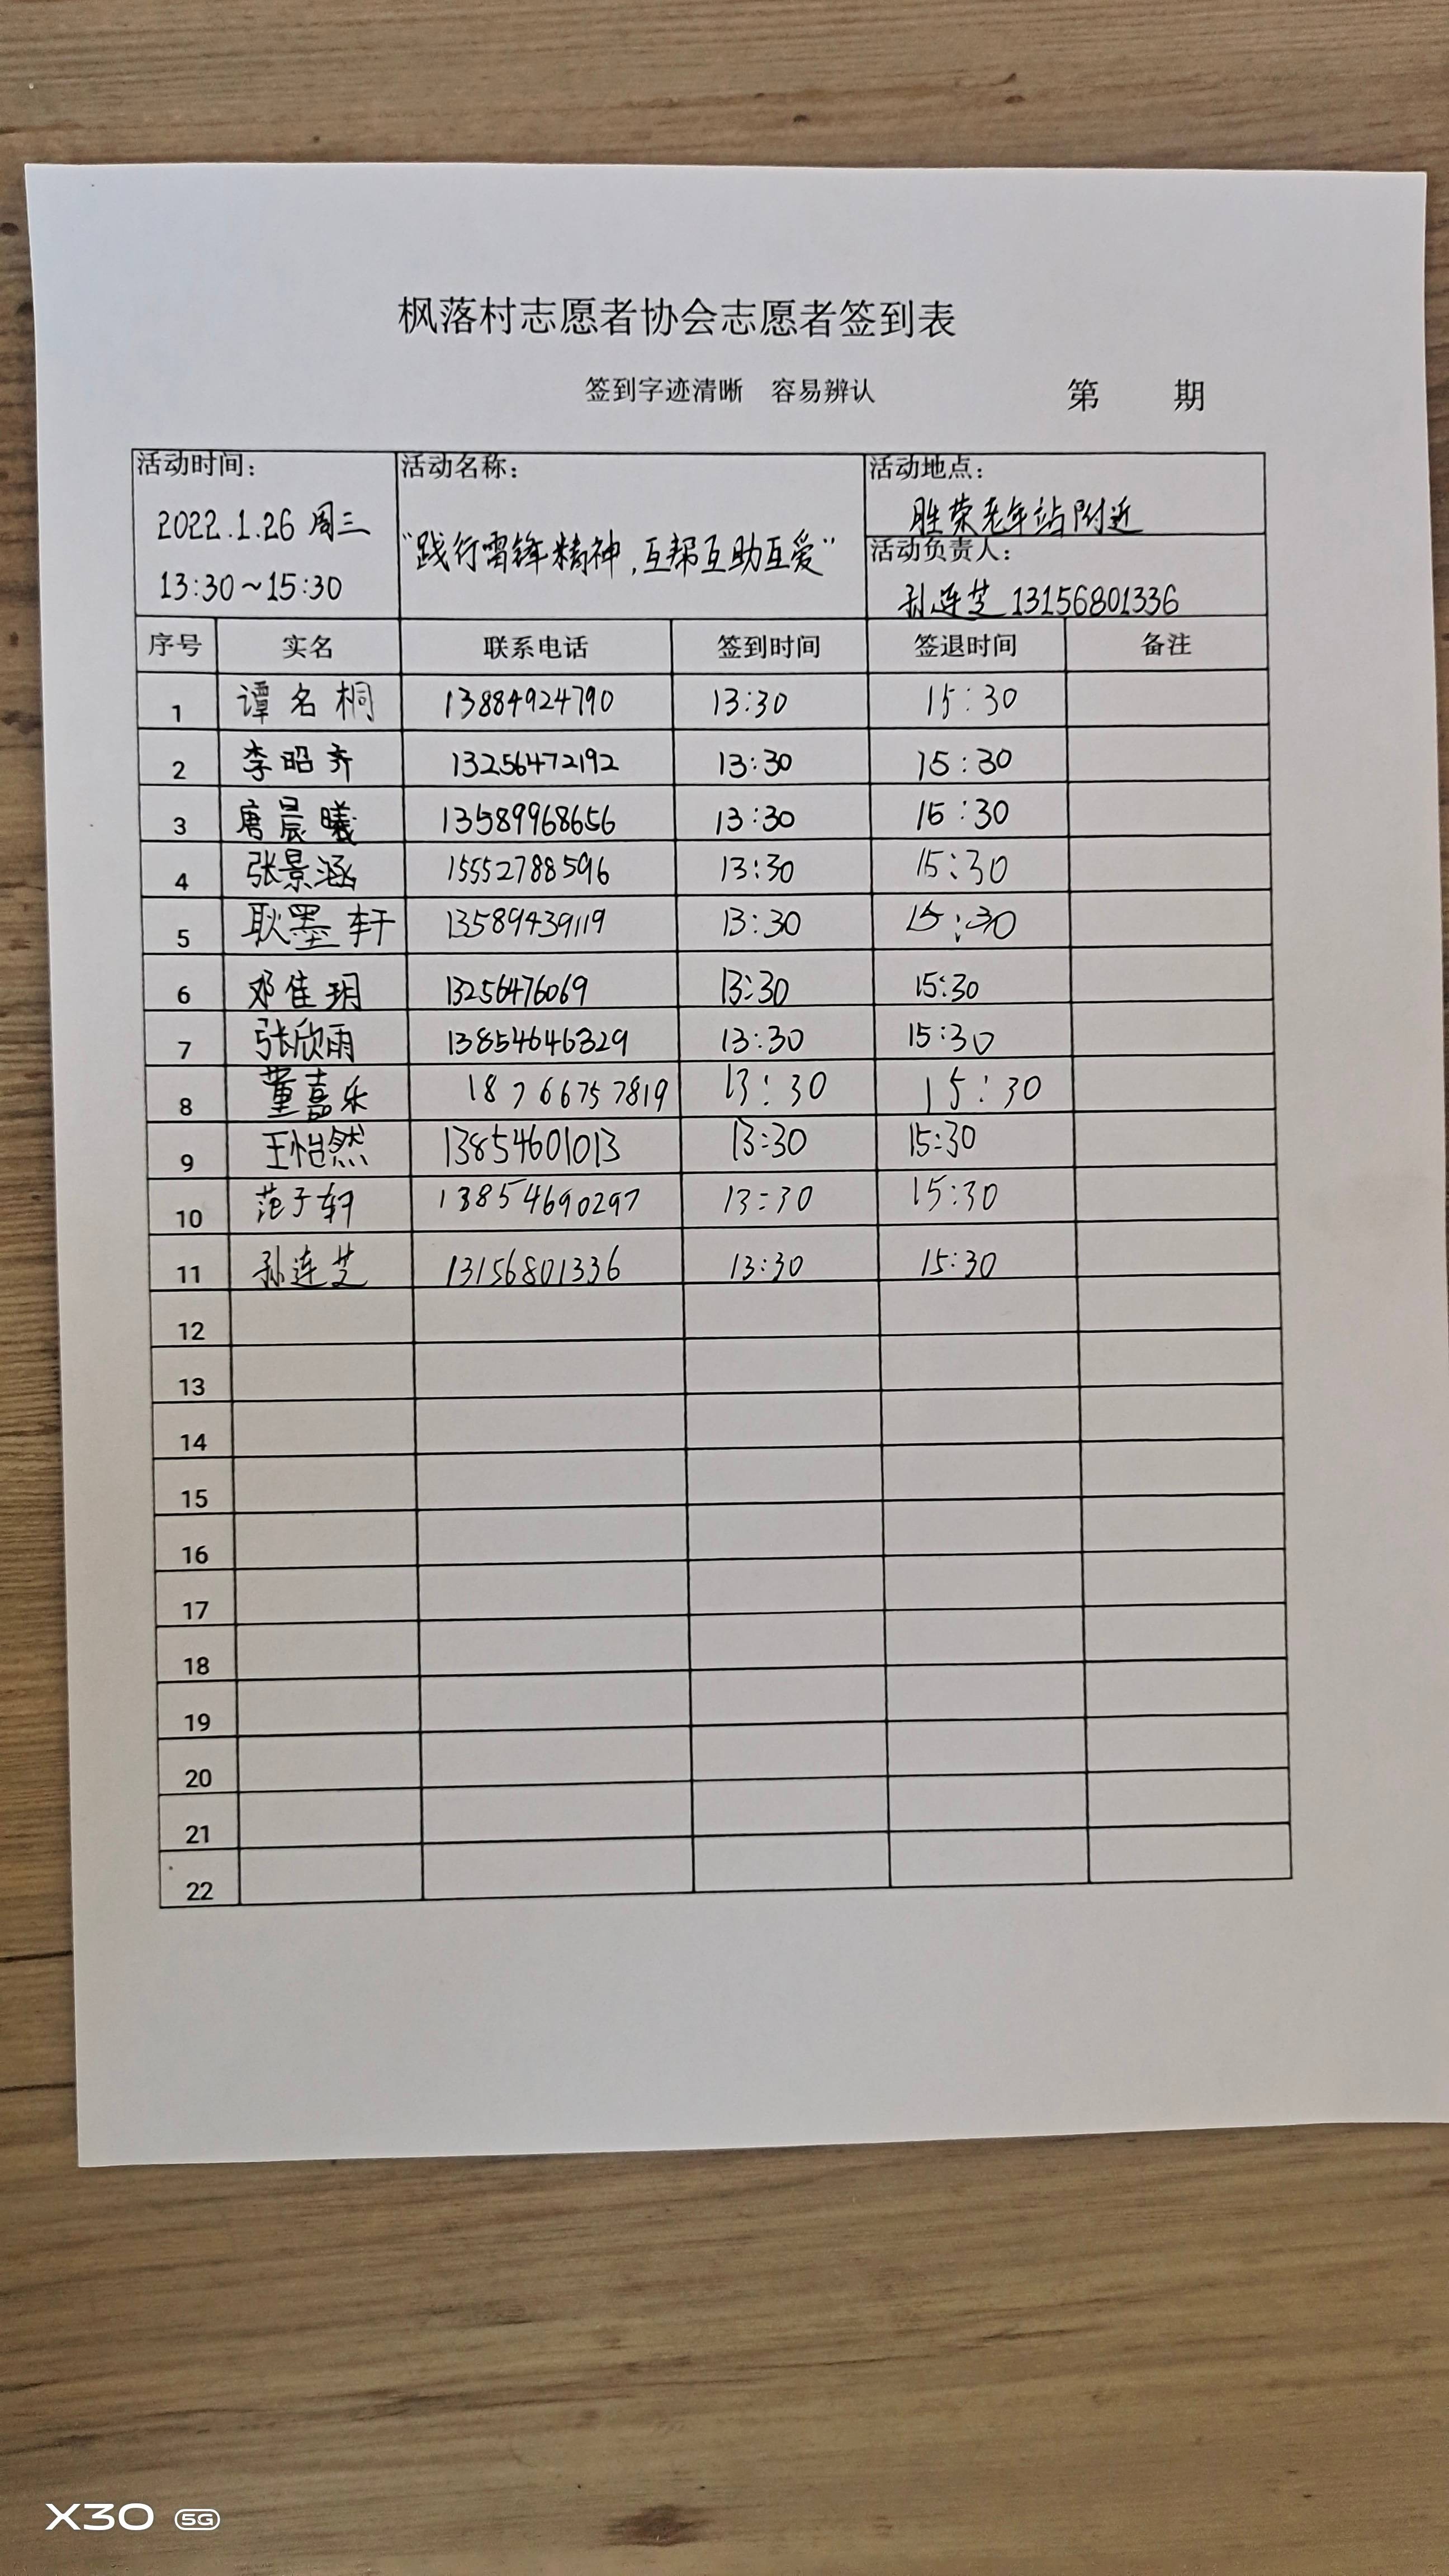 枫落村志愿者协会志愿者签到表
签到字迹清晰 容易辨认 第 期
活动时间： 活动名称： 活动地点：
2022.1.26 周三 胜荣老年站附近
13:30~15:30 “践行雷锋精神，互帮互助互爱” 活动负责人：
孙连芝 13156801336
序号 实名 联系电话 签到时间 签退时间 备注
1 谭名桐 13884924790 13:30 15:30
2 李昭齐 13256472192 13:30 15:30
3 唐晨曦 13589968656 13:30 15:30
4 张景涵 15552788596 13:30 15:30
5 耿墨轩 13589439119 13:30 15:30
6 邓佳玥 13256476069 13:30 15:30
7 张欣雨 13854646329 13:30 15:30
8 董嘉乐 18766757819 13:30 15:30
9 王怡然 13854601013 13:30 15:30
10 范子轩 13854690297 13:30 15:30
11 孙连芝 13156801336 13:30 15:30
12
13
14
15
16
17
18
19
20
21
22
X30 5G